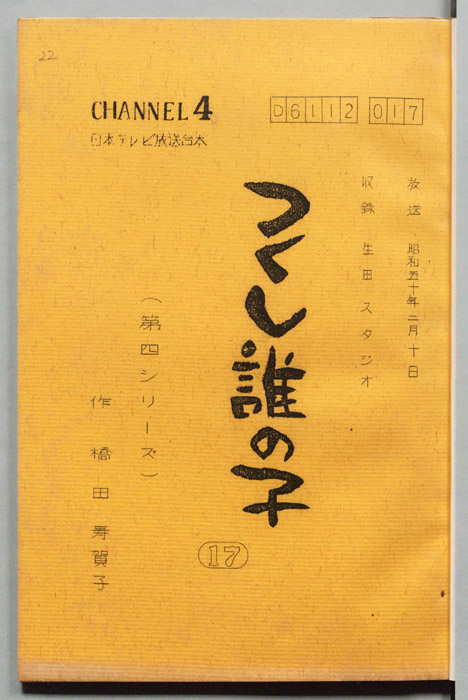 22
CHANNEL 4
日本テレビ放送台本
D6112 017
放送 昭和五十年二月十日
収録 生田スタジオ
つくし誰の子
(第四シリーズ)
17
作 橋田寿賀子